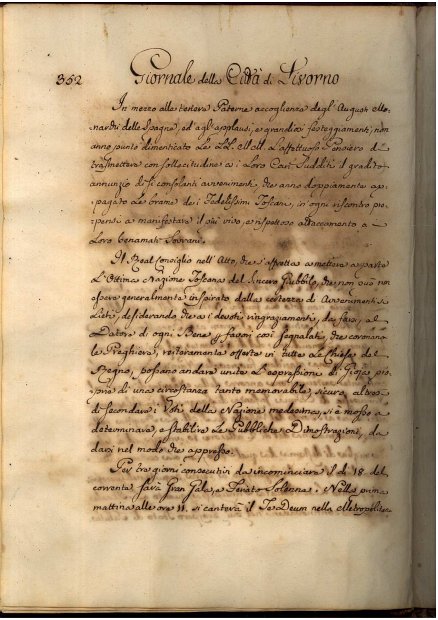 352
Giornale della Città di Livorno
In mezzo alle tenere Paterne accoglienze degl'Augusti Mo-
narchi delle Spagne, ed agl'applausi, e grandiosi festeggiamenti, non
anno punto dimenticato Le LL. MM. L'affettuoso Pensiero di
trasmettere con sollecitudine ai Loro Cari Sudditi il gradito
annunzio di sì consolanti avvenimenti, che anno doppiamente ap-
pagato Le brame dei Fedelissimi Toscani, in ogni riscontro pro-
pensi a manifestare il più vivo, e rispettoso attaccamento a
Loro benamati Sovrani.
Il Real Consiglio nell'Atto, che s'affretta a mettere a parte
L'Ottima Nazione Toscana del sincero Giubbilo, che non può non
essere generalmente inspirato dalla certezza di Avvenimenti sì
Lieti, desiderando che ai devoti ringraziamenti, da farsi, al
Datore di ogni Bene pe' favori così segnalati, che coronano
le Preghiere, reiteratamente offerte in tutte Le Chiese del
Regno, possano andare unite L'espressione di Gioja pro-
prie di una circostanza tanto memorabile; sicuro, altresì
di secondare i Voti della Nazione medesima, si è mosso a
determinare, e stabilire Le Pubbliche Dimostrazioni, da
darsi nel modo che appresso.
Per tre giorni consecutivi da incominciare il dì 18. del
corrente sarà Gran Gala, e Feriato Solenne. Nella prima
mattina alle ore 11. si canterà il Te Deum nella Metropolitana